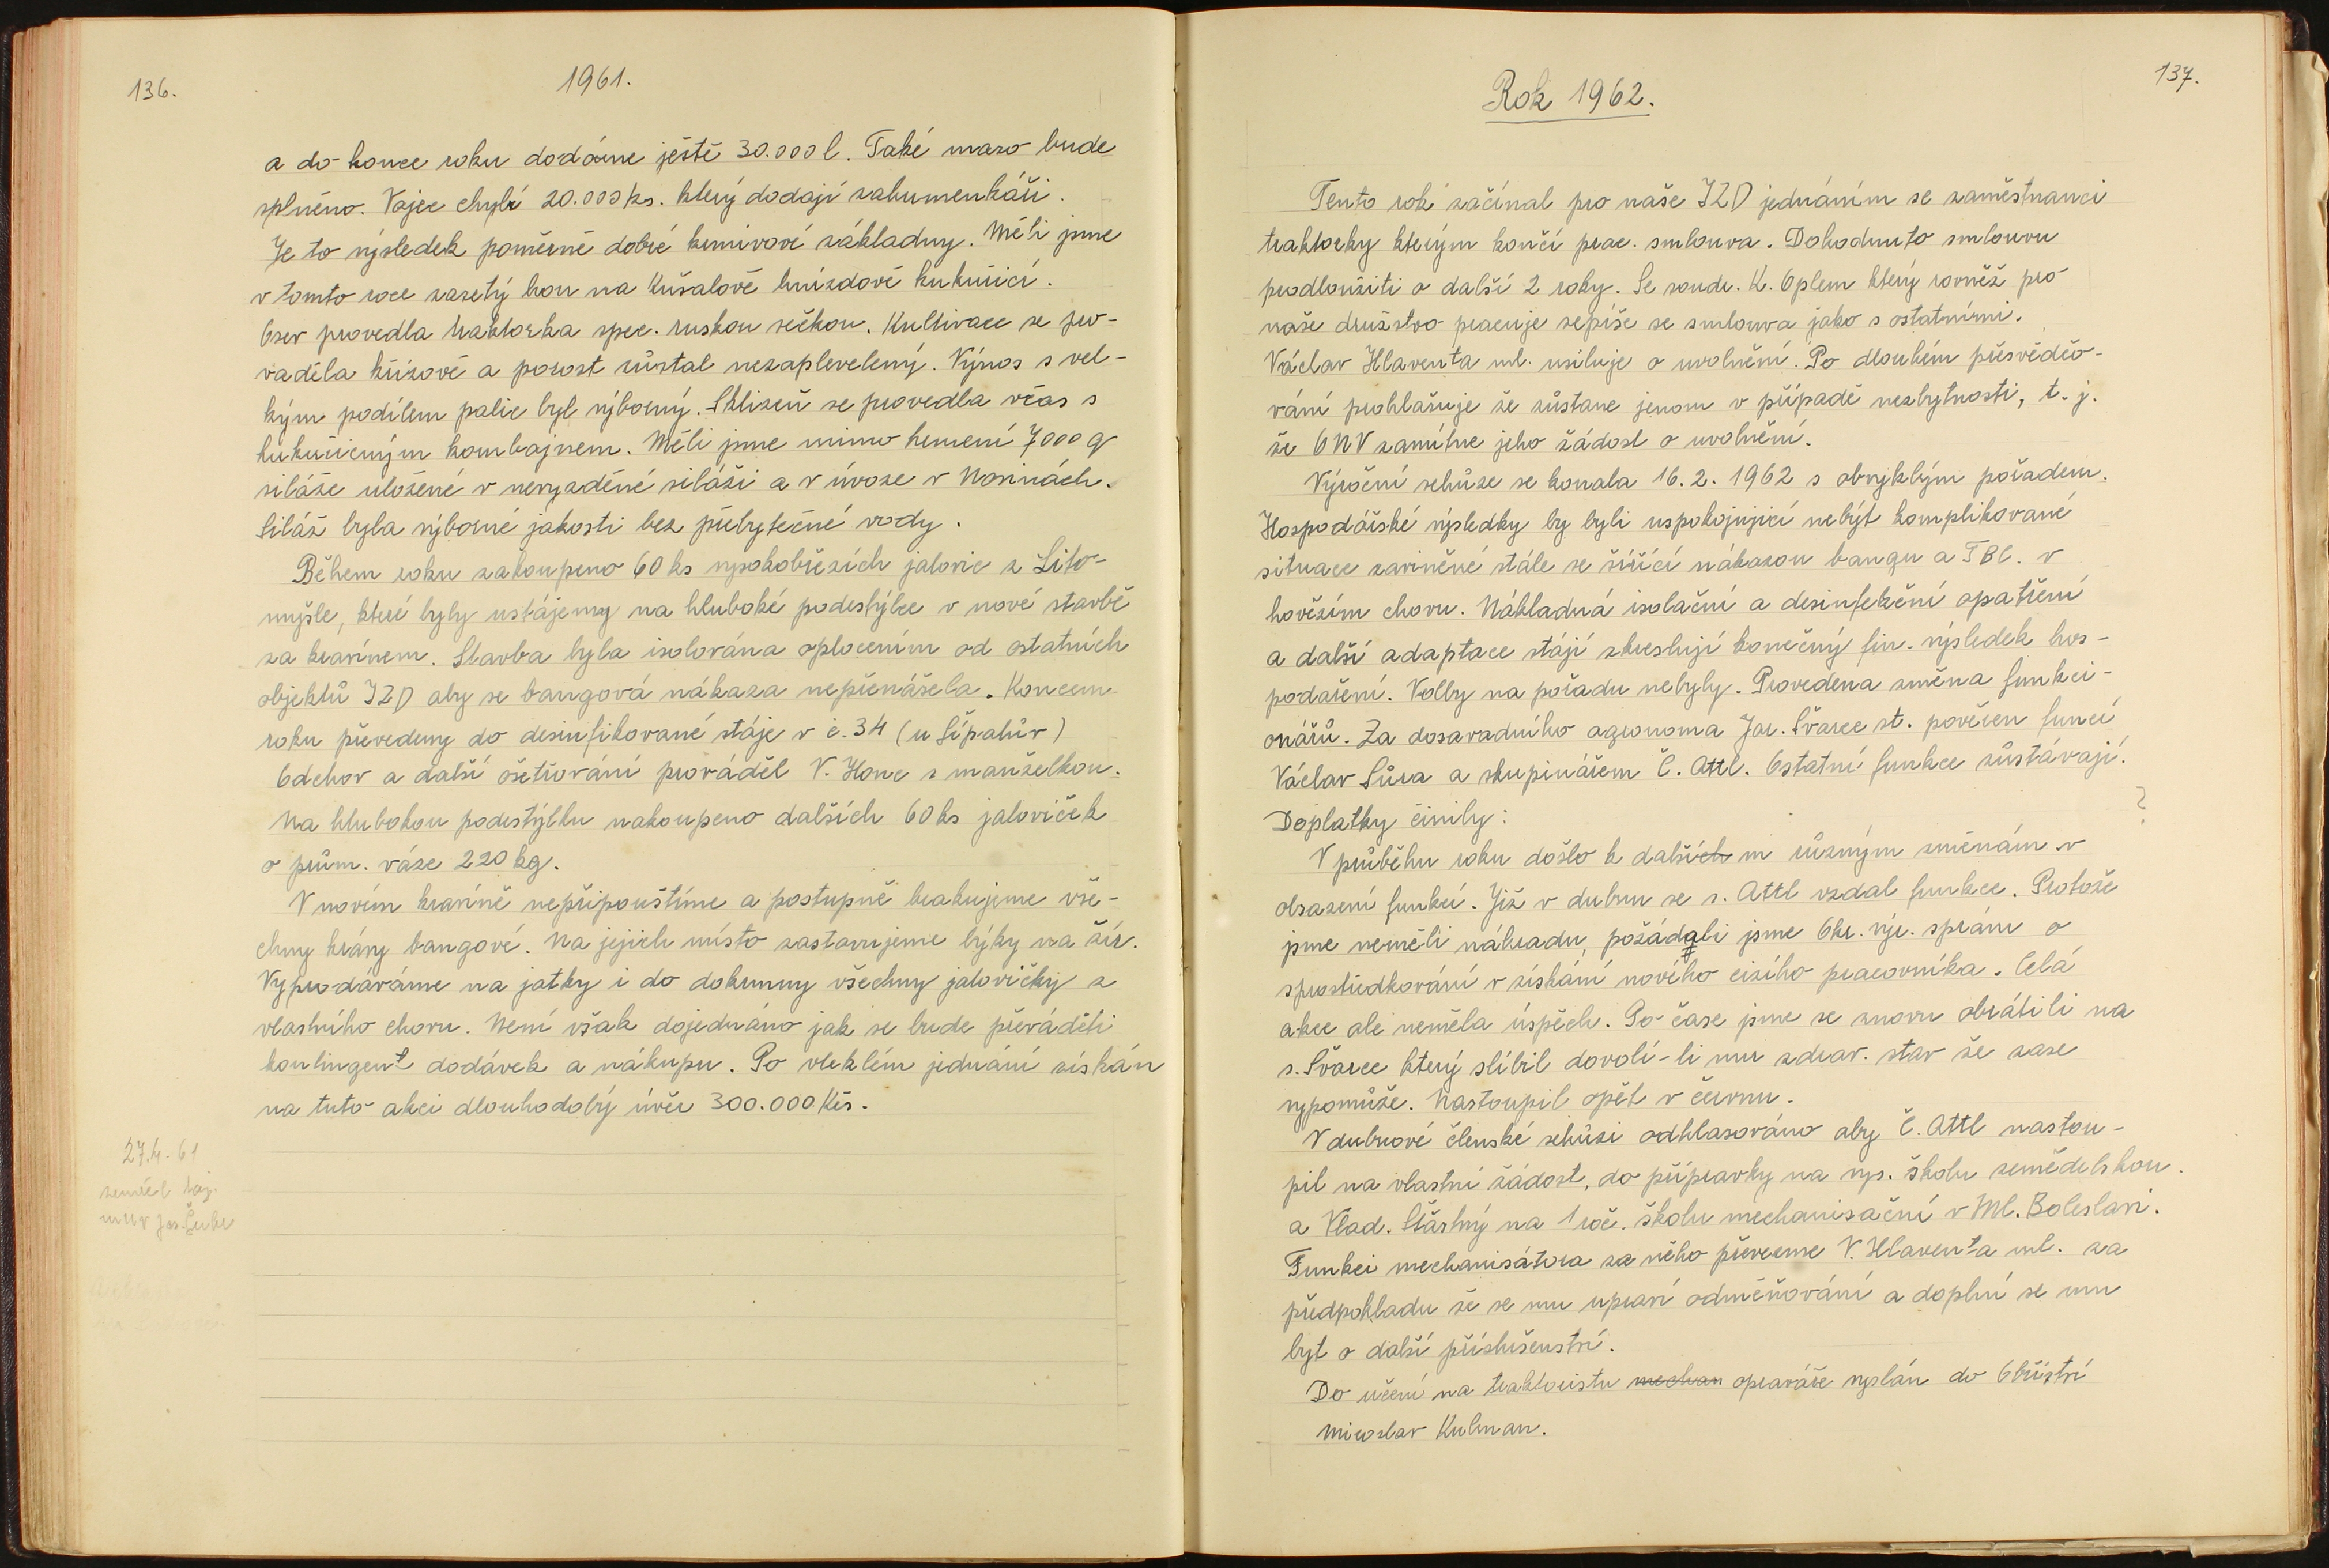 136.
1961.
a do konce roku dodáme ještě 30.000 l. Také maso bude
splněno. Vajec chybí 20.000 ks. který dodají zahumenkáři.
Je to výsledek poměrně dobré krmivové základny. Měli jsme
v tomto roce zasetý hon na Kušalově hnízdově kukuřicí.
Osev provedla traktorka spec. ruskou sečkou. Kultivace se pro-
váděla křížově a porost zůstal nezaplevelený. Výnos s vel-
kým podílem palic byl výborný. Sklizeň se provedla včas s
kukuřičným kombajnem. Měli jsme mimo krmení 7000 q
siláže uložené v nevyzděné siláži a v úvoze v Nosinách.
Siláž byla výborné jakosti bez přebytečné vody.
Během roku zakoupeno 60 ks vysokobřezích jalovic z Lito-
myšle, které byly ustájeny na hluboké podestýlce v nové stavbě
za kravínem. Stavba byla isolována oplocením od ostatních
objektů JZD aby se bangová nákaza nepřenášela. Koncem
roku převedeny do desinfikované stáje v č. 34 (u Šípalův)
Odchov a další ošetřování prováděl V. Honc s manželkou.
Na hlubokou podestýlku nakoupeno dalších 60 ks jaloviček
o prům. váze 220 kg.
V novém kravíně nepřipouštíme a postupně brakujeme vše-
chny krávy bangové. Na jejich místo zastavujeme býky na žír.
Vyprodáváme na jatky i do dokrmny všechny jalovičky z
vlastního chovu. Není však dojednáno jak se bude převáděti
kontingent dodávek a nákupu. Po vleklém jednání získán
na tuto akci dlouhodobý úvěr 300.000 Kčs.
27.4.-61
zemřel taj.
MNV Jos.
137.
Rok 1962.
Tento rok začínal pro naše JZD jednáním se zaměstnanci
traktorky kterým končí prac. smlouva. Dohodnuto smlouvu
prodloužiti o další 2 roky. Se soudr. K. Oplem který rovněž pro
naše družstvo pracuje sepíše se smlouva jako s ostatními.
Václav Hlaventa ml. usiluje o uvolnění. Po dlouhém přesvědčo-
vání prohlašuje že zůstane jenom v případě nezbytnosti, t. j.
že ONV zamítne jeho žádost o uvolnění.
Výroční schůze se konala 16. 2. 1962 s obvyklým pořadem.
Hospodářské výsledky by byli uspokojující nebýt komplikované
situace zaviněné stále se šířící nákazou bangu a TBC. v
hovězím chovu. Nákladná isolační a desinfekční opatření
a další adaptace stájí zkreslují konečný fin. výsledek hos-
podaření. Volby na pořadu nebyly. Provedena změna funkci-
onářů. Za dosavadního agronoma Jar. Švarce st. pověřen funcí
Václav Sůva a skupinářem Č. Attl. Ostatní funkce zůstávají.
Doplatky činily:
?
V průběhu roku došlo k dalších m různým změnám v
obsazení funkcí. Již v dubnu se s. Attl vzdal funkce. Protože
jsme neměli náhradu, požádali jsme Okr. výr. správu o
sprostředkování v získání nového cizího pracovníka. Celá
akce ale neměla úspěch. Po čase jsme se znovu obrátili na
s. Švarce který slíbil dovolí-li mu zdrav. stav že zase
vypomůže. Nastoupil opět v červnu.
V dubnové členské schůzi odhlasováno aby Č. Attl nastou-
pil na vlastní žádost, do přípravky na vys. školu zemědělskou.
a Vlad. Šťastný na 1 roč. školu mechanisační v Ml. Boleslavi.
Funkci mechanisátora za něho převezme V. Hlaventa ml. za
předpokladu že se mu upraví odměňování a doplní se mu
byt o další příslušenství.
Do učení na traktoristu mechan opraváře vyslán do Obříství
Miroslav Kulman.